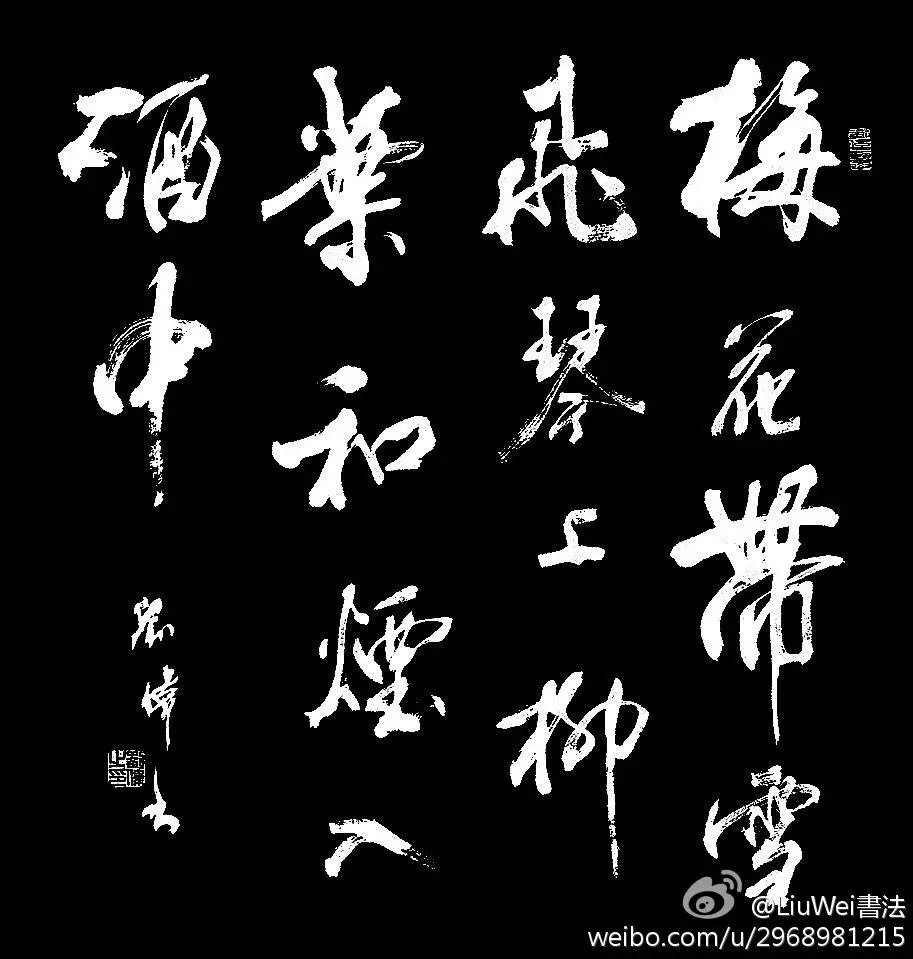 梅花帶雪
飛琴上柳
葉和煙入
酒中
偉书
@LiuWei書法
weibo.com/u/2968981215